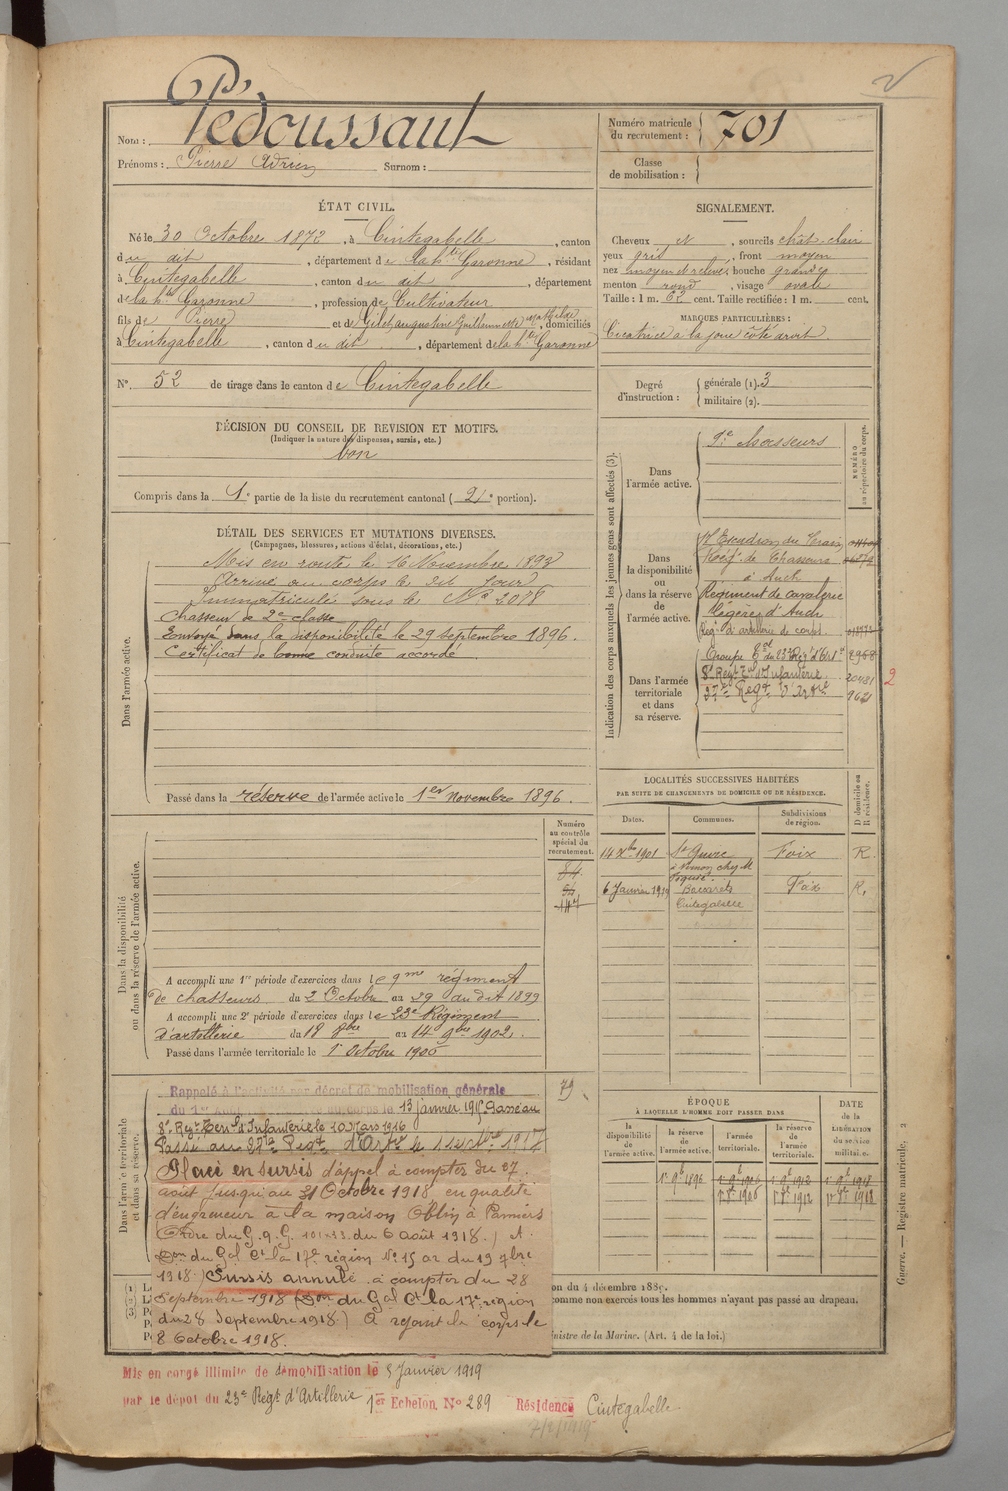 Nom : Pédoussaut
Prénoms : Pierre Adrien Surnom :
Numéro matricule du recrutement : 701
Classe de mobilisation :
ÉTAT CIVIL.
Né le 30 Octobre 1872, à Cintegabelle, canton
du dit, département de la hte Garonne, résidant
à Cintegabelle, canton du dit, département
de la hte Garonne, profession de Cultivateur
fils de Pierre et de Gilet augustine Guillaumette Mathilde, domiciliés
à Cintegabelle, canton du dit, département de la hte Garonne
N° 52 de tirage dans le canton de Cintegabelle
SIGNALEMENT.
Cheveux , sourcils chât-clair
yeux gris, front moyen
nez moyen et relevé, bouche grande
menton rond, visage ovale
Taille : 1 m. 62 cent. Taille rectifiée : 1 m. cent.
MARQUES PARTICULIÈRES :
Cicatrice à la joue côté droit.
Degré d'instruction : générale (1). 3
militaire (2).
DÉCISION DU CONSEIL DE REVISION ET MOTIFS.
(Indiquer la nature des dispenses, sursis, etc.)
bon
Compris dans la 1e partie de la liste du recrutement cantonal (2e portion).
DÉTAIL DES SERVICES ET MUTATIONS DIVERSES.
(Campagnes, blessures, actions d'éclat, décorations, etc.)
Dans l'armée active.
Mis en route le 16 Novembre 1893
Arrivé au corps le dit jour
Immatriculé sous le N° 2078
Chasseur de 2e classe
Envoyé dans la disponibilité le 29 septembre 1896.
Certificat de bonne conduite accordé
Passé dans la réserve de l'armée active le 1er Novembre 1896.
Indication des corps auxquels les jeunes gens sont affectés (3).
NUMÉRO au répertoire du corps.
Dans l'armée active.
9e Chasseurs
Dans la disponibilité ou dans la réserve de l'armée active.
17 Escadron du Train
Regt de Chasseurs
à Auch
Régiment de cavalerie
légère d'Auch
Regt d'artillerie de corps.
Dans l'armée territoriale et dans sa réserve.
Groupe Eal du 23e Régt d'Art. 2968
8e Regt Eal d'Infanterie 20481
27e Regt d'Artie 962
2
LOCALITÉS SUCCESSIVES HABITÉES
PAR SUITE DE CHANGEMENTS DE DOMICILE OU DE RÉSIDENCE.
Dates. Communes. Subdivisions de région. D domicile ou R résidence.
14 Xbre 1901 Foix R.
6 Janvier 1919 Baccarets Cintegabelle Foix R.
Dans la disponibilité ou dans la réserve de l'armée active
Numéro au contrôle spécial du recrutement.
84
A accompli une 1re période d'exercices dans le 9me régiment
de chasseurs du 2 Octobre au 29 du dit 1899
A accompli une 2e période d'exercices dans le 23e Régiment
d'artillerie du 18 8bre au 14 9bre 1902.
Passé dans l'armée territoriale le 1er Octobre 1906
79
Dans l'armée territoriale et dans sa réserve.
Rappelé à l'activité par décret de mobilisation générale
du 1er Août au corps le 13 janvier 1915. Passé au
8e Regt Terral d'Infanterie le 10 Mars 1916
Passé au 27e Regt d'Artie le 1917
Placé en sursis d'appel à compter du 27
août jusqu'au 31 Octobre 1918 en qualité
d'engreneur à la maison Oblin à Pamiers
(Ordre du G.Q.G. 10133 du 6 août 1918.) et
don du Gal Ct la 17e région N° 15 02 du 19 7bre
1918.) Sursis annulé à compter du 28
Septembre 1918 (don du Gal Ct la 17e région
du 28 Septembre 1918) A rejoint le corps le
8 Octobre 1918.
ÉPOQUE
À LAQUELLE L'HOMME DOIT PASSER DANS
DATE de la LIBÉRATION du service militaire.
la disponibilité de l'armée active. la réserve de l'armée active. l'armée territoriale. la réserve de l'armée territoriale.
1er 9bre 1896 1er 9bre 1906 1er 9bre 1912 1er 9bre 1918
1er 8bre 1906 1er 8bre 1912 1er 8bre 1918
on du 4 décembre 1889.
comme non exercés tous les hommes n'ayant pas passé au drapeau.
inistre de la Marine. (Art. 4 de la loi.)
Guerre. — Registre matricule. 2
Mis en congé illimité de démobilisation le 8 Janvier 1919
par le dépôt du 23e Régt d'Artillerie 1er Echelon, N° 289 Résidence Cintegabelle